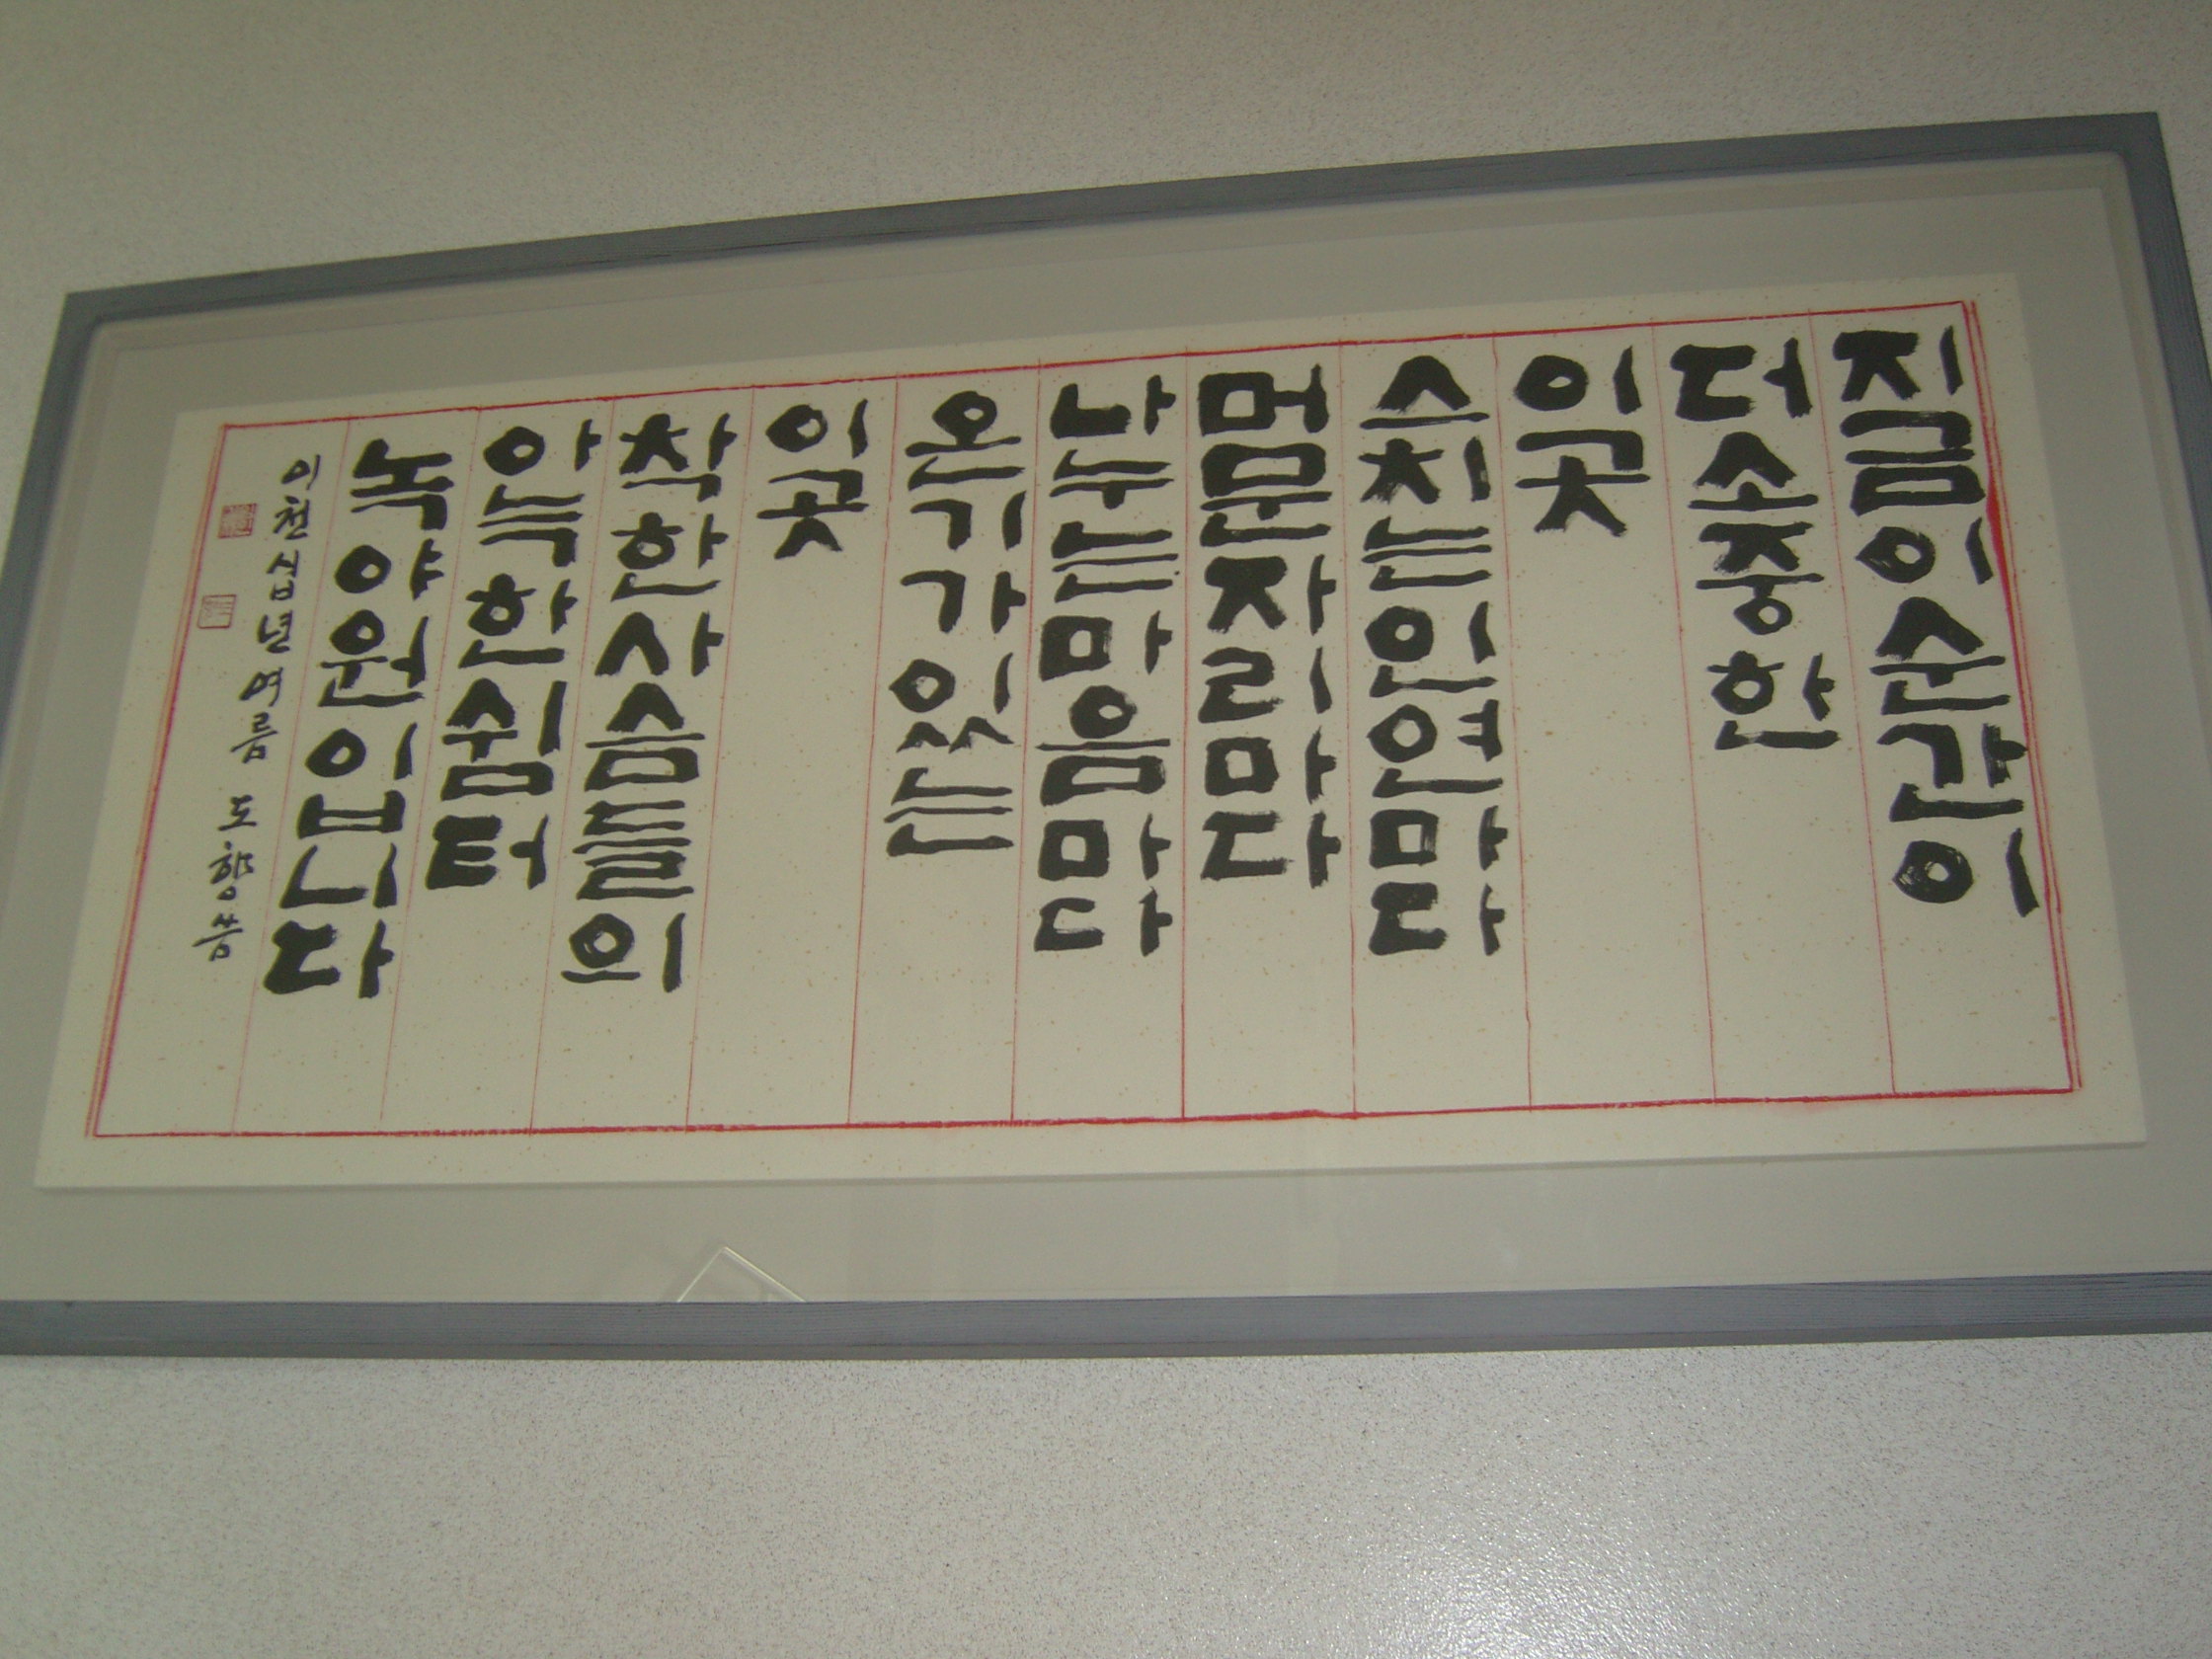 지금이순간이
더소중한
이곳
스치는인연마다
머문자리마다
나누는마음마다
온기가있는
이곳
착한사슴들의
아늑한쉼터
녹야원입니다
이천십년여름 도향씀